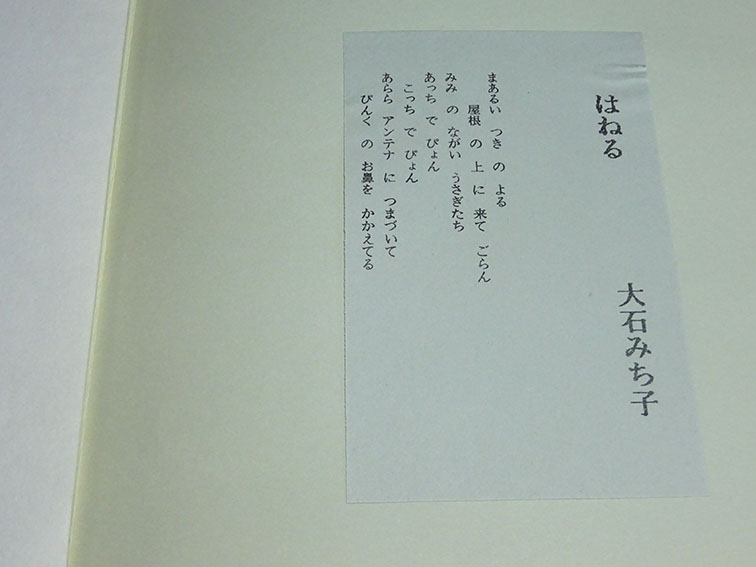 はねる
大石みち子
まあるい つき の よる
屋根 の 上 に 来て ごらん
みみ の ながい うさぎたち
あっち で ぴょん
こっち で ぴょん
あらら アンテナ に つまづいて
ぴんく の お鼻を かかえてる